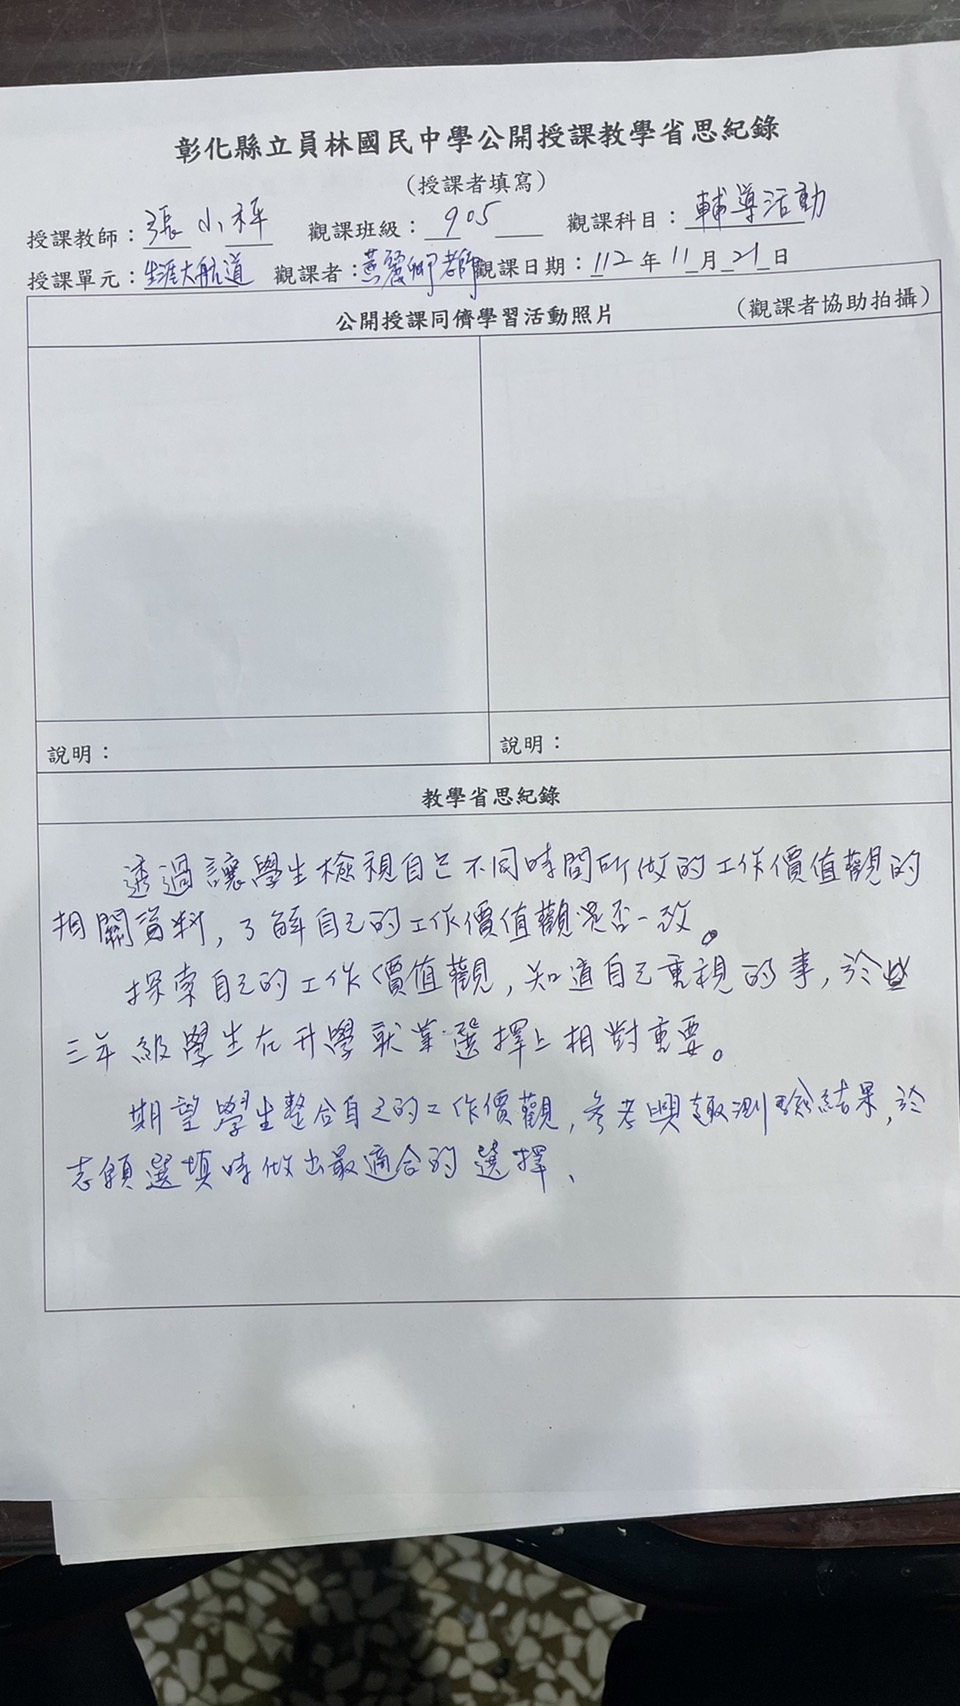 彰化縣立員林國民中學公開授課教學省思紀錄
(授課者填寫)
授課教師：張小梅 觀課班級：905 觀課科目：輔導活動
授課單元：生涯大航道 觀課者：黃麗卿老師 觀課日期：112年11月21日
公開授課同儕學習活動照片 (觀課者協助拍攝)
說明： 說明：
教學省思紀錄
透過讓學生檢視自己不同時間所做的工作價值觀的
相關資料，了解自己的工作價值觀是否一致。
探索自己的工作價值觀，知道自己重視的事，於
三年級學生在升學就業選擇上相對重要。
期望學生整合自己的工作價觀，參考興趣測驗結果，於
志願選填時做出最適合的選擇、